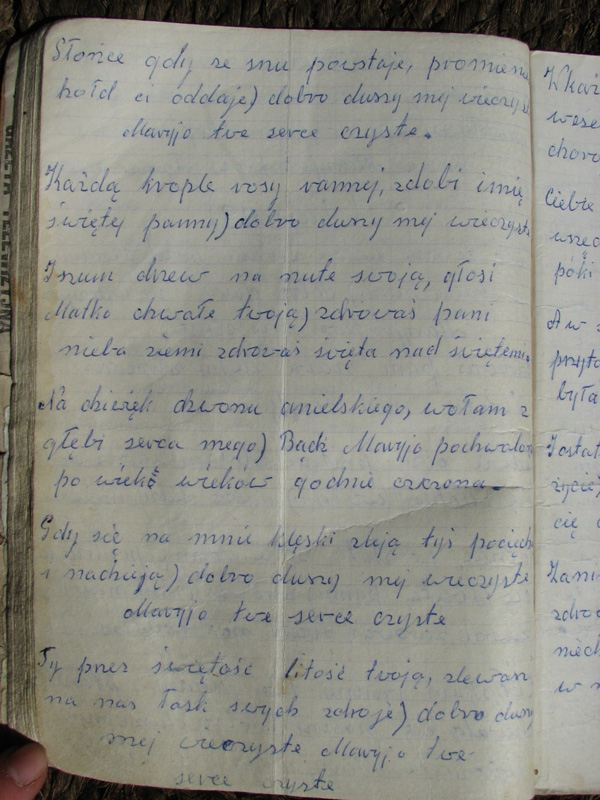 Słońce gdy ze snu powstaje, promieni
hołd ci oddaje) dobro duszy mej wieczys
Maryjo twe serce czyste.
Każdą krople rosy rannej, zdobi imię
świętej panny) dobro duszy mej wieczyst
I szum drzew na nute swoją, głosi
Matko chwałe twoją) zdrowaś pani
nieba ziemi zdrowaś święta nad świętemi.
Na dzwięk dzwonu anielskiego, wołam z
głębi serca mego) Bądź Maryjo pochwalon
po wiek wieków godnie czczona.
Gdy się na mnie klęski zleją tyś pociech
i nadzieją) dobro duszy mej wieczyste
Maryjo twe serce czyste
Ty przez świętość litość twoją, zlewasz
na nas łask swych zdroje) dobro duszy
mej wieczyste Maryjo twe
serce czyste
Ciebie
póki
A w
była
życie
cię
w